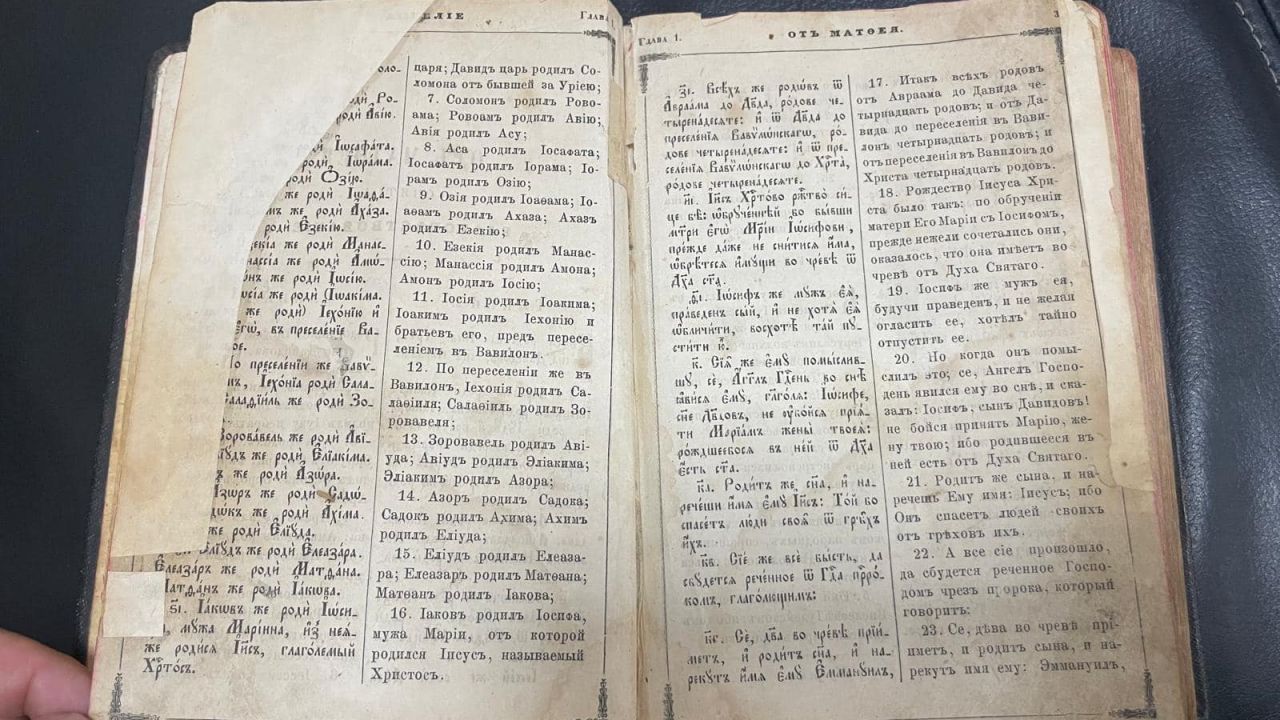 ЕЛІЕ
Глава
оло-
оди Ро-
роди Авію.
и Іѡсафата.
роди Іѡрама.
роди Озію.
же роди Іѡада-
мъ же роди Ахаза.
роди Езекію.
екіа же роди Манас-
нассіа же роди Амѡ-
ѡнъ же роди Іѡсію.
ѡсіа же роди Іѡакіма.
же роди) Іехонію и
егѡ, въ преселеніе Ва-
ое.
По преселеніи же Вавѷ-
мъ, Іехоніа роди Сала-
Салаѳіиль же роди Зо-
Зоровавель же роди Аві-
іудъ же роди Еліакіма.
ъ же роди Азѡра.
Азѡръ же роди Садѡ-
дѡкъ же роди Ахіма.
же роди Еліуда.
Еліудъ же роди Елеазара.
Елеазаръ же роди Матѳана.
Матѳанъ же роди Іакѡва.
ѕ҃і. Іакѡвъ же роди Іѡси-
, мужа Маріина, изъ нея-
же родися Іи҃съ, глаголемый
Хр҃тосъ.
царя; Давидъ царь родилъ Со-
ломона отъ бывшей за Уріею;
7. Соломонъ родилъ Рово-
ама; Ровоамъ родилъ Авію;
Авія родилъ Асу;
8. Аса родилъ Іосафата;
Іосафатъ родилъ Іорама; Іо-
рамъ родилъ Озію;
9. Озія родилъ Іоаѳама; Іо-
аѳамъ родилъ Ахаза; Ахазъ
родилъ Езекію;
10. Езекія родилъ Манас-
сію; Манассія родилъ Амона;
Амонъ родилъ Іосію;
11. Іосія родилъ Іоакима;
Іоакимъ родилъ Іехонію и
братьевъ его, предъ пересе-
леніемъ въ Вавилонъ.
12. По переселеніи же въ
Вавилонъ, Іехонія родилъ Са-
лаѳіиля; Салаѳіиль родилъ Зо-
ровавеля;
13. Зоровавель родилъ Аві-
уда; Авіудъ родилъ Эліакима;
Эліакимъ родилъ Азора;
14. Азоръ родилъ Садока;
Садокъ родилъ Ахима; Ахимъ
родилъ Еліуда;
15. Еліудъ родилъ Елеаза-
ра; Елеазаръ родилъ Матѳана;
Матѳанъ родилъ Іакова;
16. Іаковъ родилъ Іосифа,
мужа Маріи, отъ которой
родился Іисусъ, называемый
Христосъ.
Глава 1.
ОТЪ МАТѲЕЯ.
3
з҃і. Всѣхъ же родѡвъ ѿ
Авраама до Дв҃да, родове че-
тыренадесяте: и ѿ Дв҃да до
преселенія Вавѷлѡнскагѡ, ро-
дове четыренадесяте: и ѿ пре-
селенія Вавѷлѡнскагѡ до Хр҃та,
родове четыренадесяте.
и҃і. Іи҃съ Хр҃тово рж҃тво си-
це бѣ: ѡбрученнѣй бо бывши
м҃три егѡ Мр҃іи Іѡсифови,
прежде даже не снитися има,
ѡбрѣтеся имущи во чревѣ ѿ
Дх҃а ст҃а.
ѳ҃і. Іѡсифъ же мужъ ея,
праведенъ сый, и не хотя ея
ѡбличити, восхотѣ тай пу-
стити ю.
к҃. Сія же ему помыслив-
шу, се, Агг҃лъ Гд҃ень во снѣ
явися ему, глаголя: Іѡсифе,
сыне Дв҃довъ, не убойся прія-
ти Маріамъ жены твоея:
рождшеебося въ ней ѿ Дх҃а
есть ст҃а.
к҃а. Родитъ же сн҃а, и на-
речеши имя ему Іи҃съ: Той бо
спасетъ люди своя ѿ грѣхъ
ихъ.
к҃в. Сіе же все бысть, да
сбудется реченное ѿ Гд҃а прⷪ҇ро-
комъ, глаголющимъ:
к҃г. Се, дв҃а во чревѣ прій-
метъ, и родитъ сн҃а, и на-
рекутъ имя ему Еммануилъ,
17. Итакъ всѣхъ родовъ
отъ Авраама до Давида че-
тырнадцать родовъ; и отъ Да-
вида до переселенія въ Вави-
лонъ четырнадцать родовъ; и
отъ переселенія въ Вавилонъ до
Христа четырнадцать родовъ.
18. Рождество Іисуса Хри-
ста было такъ: по обрученіи
матери Его Маріи съ Іосифомъ,
прежде нежели сочетались они,
оказалось, что она имѣетъ во
чревѣ отъ Духа Святаго.
19. Іосифъ же мужъ ея,
будучи праведенъ, и не желая
огласить ее, хотѣлъ тайно
отпустить ее.
20. Но когда онъ помы-
слилъ это; се, Ангелъ Госпо-
день явился ему во снѣ, и ска-
залъ: Іосифъ, сынъ Давидовъ!
не бойся принять Марію, же-
ну твою; ибо родившееся въ
ней есть отъ Духа Святаго.
21. Родитъ же сына, и на-
речешь Ему имя: Іисусъ; ибо
Онъ спасетъ людей своихъ
отъ грѣховъ ихъ.
22. А все сіе произошло,
да сбудется реченное Госпо-
домъ чрезъ п орока, который
говоритъ:
23. Се, дѣва во чревѣ прі-
иметъ, и родитъ сына, и на-
рекутъ имя ему: Эммануилъ,